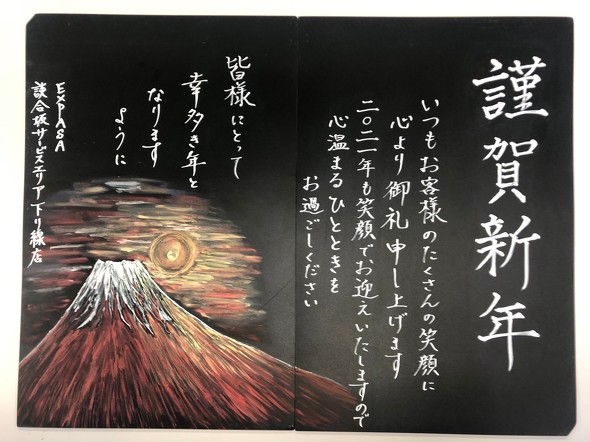 謹賀新年
いつもお客様のたくさんの笑顔に
心より御礼申し上げます
二〇二一年も笑顔でお迎えいたしますので
心温まるひとときを
お過ごしください
皆様にとって
幸多き年と
なります
ように
EXPASA
談合坂サービスエリア下り線店